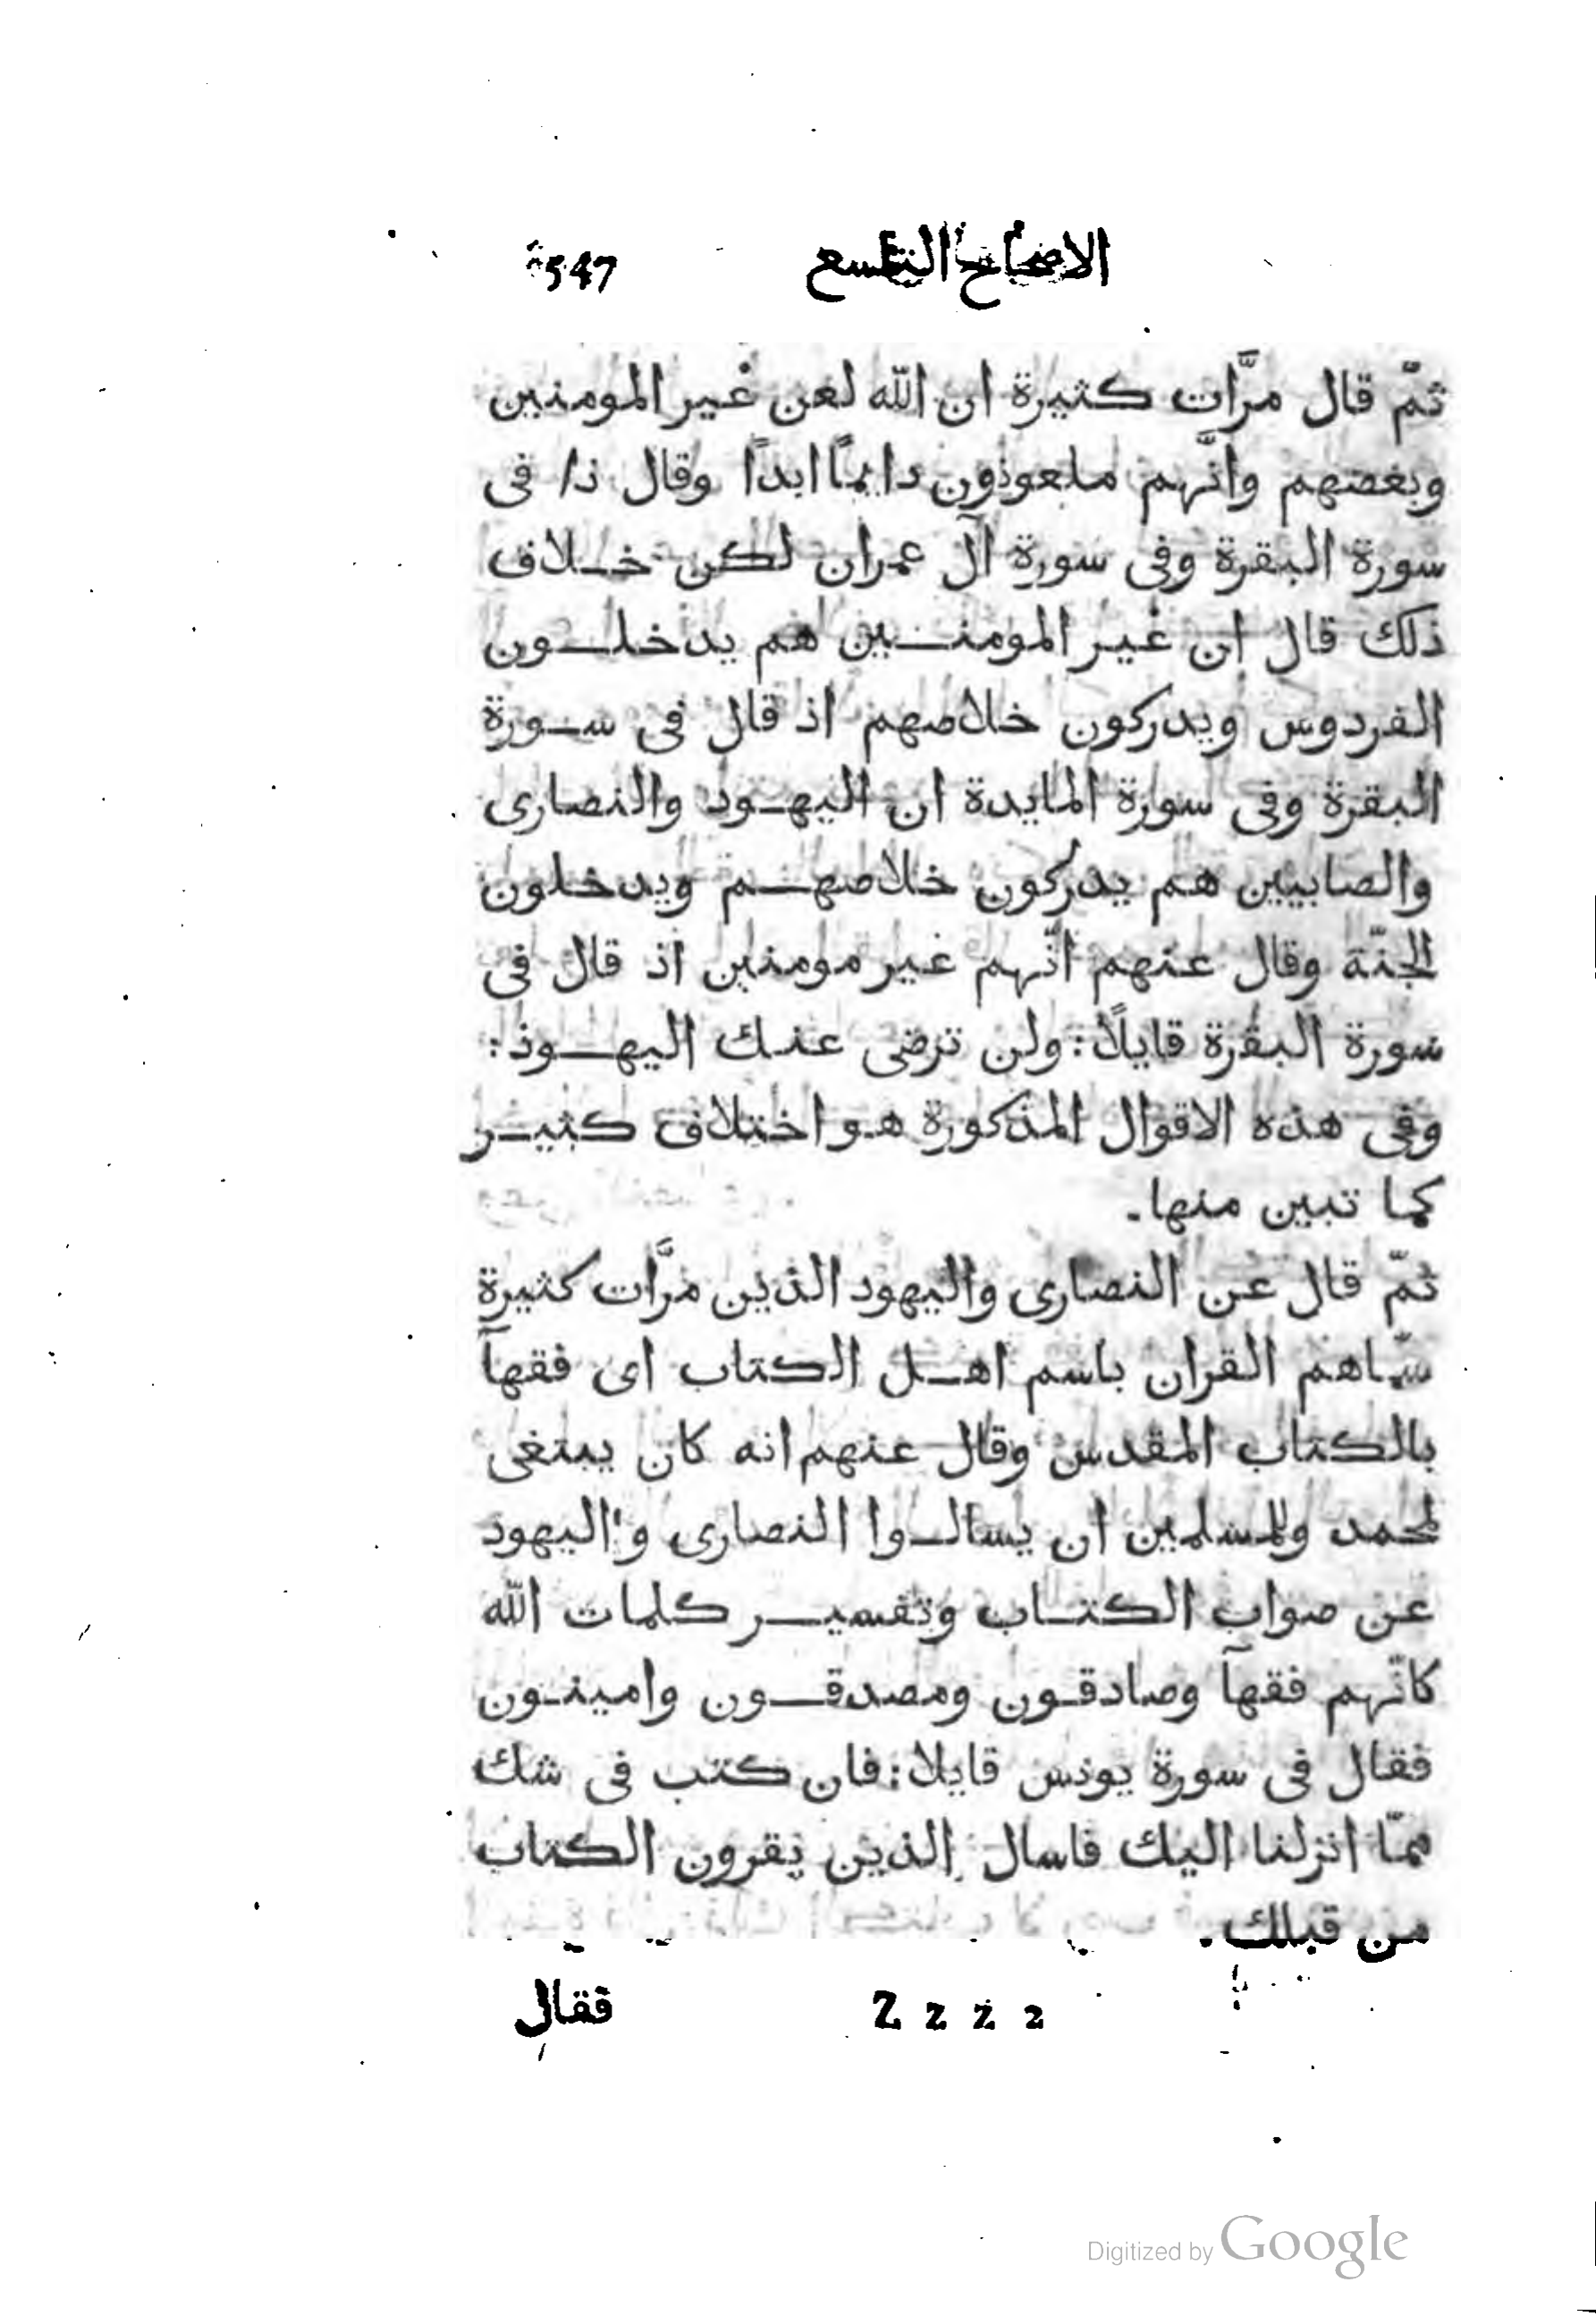 الاصحاح التاسع 547
ثمّ قال مرَّات كثيرة ان اللّه لعن غير المومنين
وبغضهم وانَّهم ملعونون دايمًا ابدًا وقال ذا فى
سورة البقرة وفى سورة آل عمران لكن خلاف
ذلك قال ان غير المومنين هم يدخلون
الفردوس ويدركون خلاصهم اذ قال فى سورة
البقرة وفى سورة المايدة ان اليهود والنصارى
والصابيين هم يدركون خلاصهم ويدخلون
الجنّة وقال عنهم انّهم غير مومنين اذ قال فى
سورة البقرة قايلًا: ولن ترضى عنك اليهود:
وفى هذه الاقوال المذكورة هو اختلاف كثير
كما تبين منها.
ثمّ قال عن النصارى واليهود الذين مرَّات كثيرة
سمّاهم القران باسم اهل الكتاب اى فقهآ
بالكتاب المقدس وقال عنهم انه كان يبتغى
لمحمد وللمسلمين ان يسالوا النصارى واليهود
عن صواب الكتاب وتفسير كلمات اللّه
كانّهم فقهآ وصادقون ومصدقون وامينون
فقال فى سورة يونس قايلا: فان كتب فى شك
ممّا انزلنا اليك فاسال الذين يقرون الكتاب
من قبلك.
Z z z 2 فقال
Digitized by Google